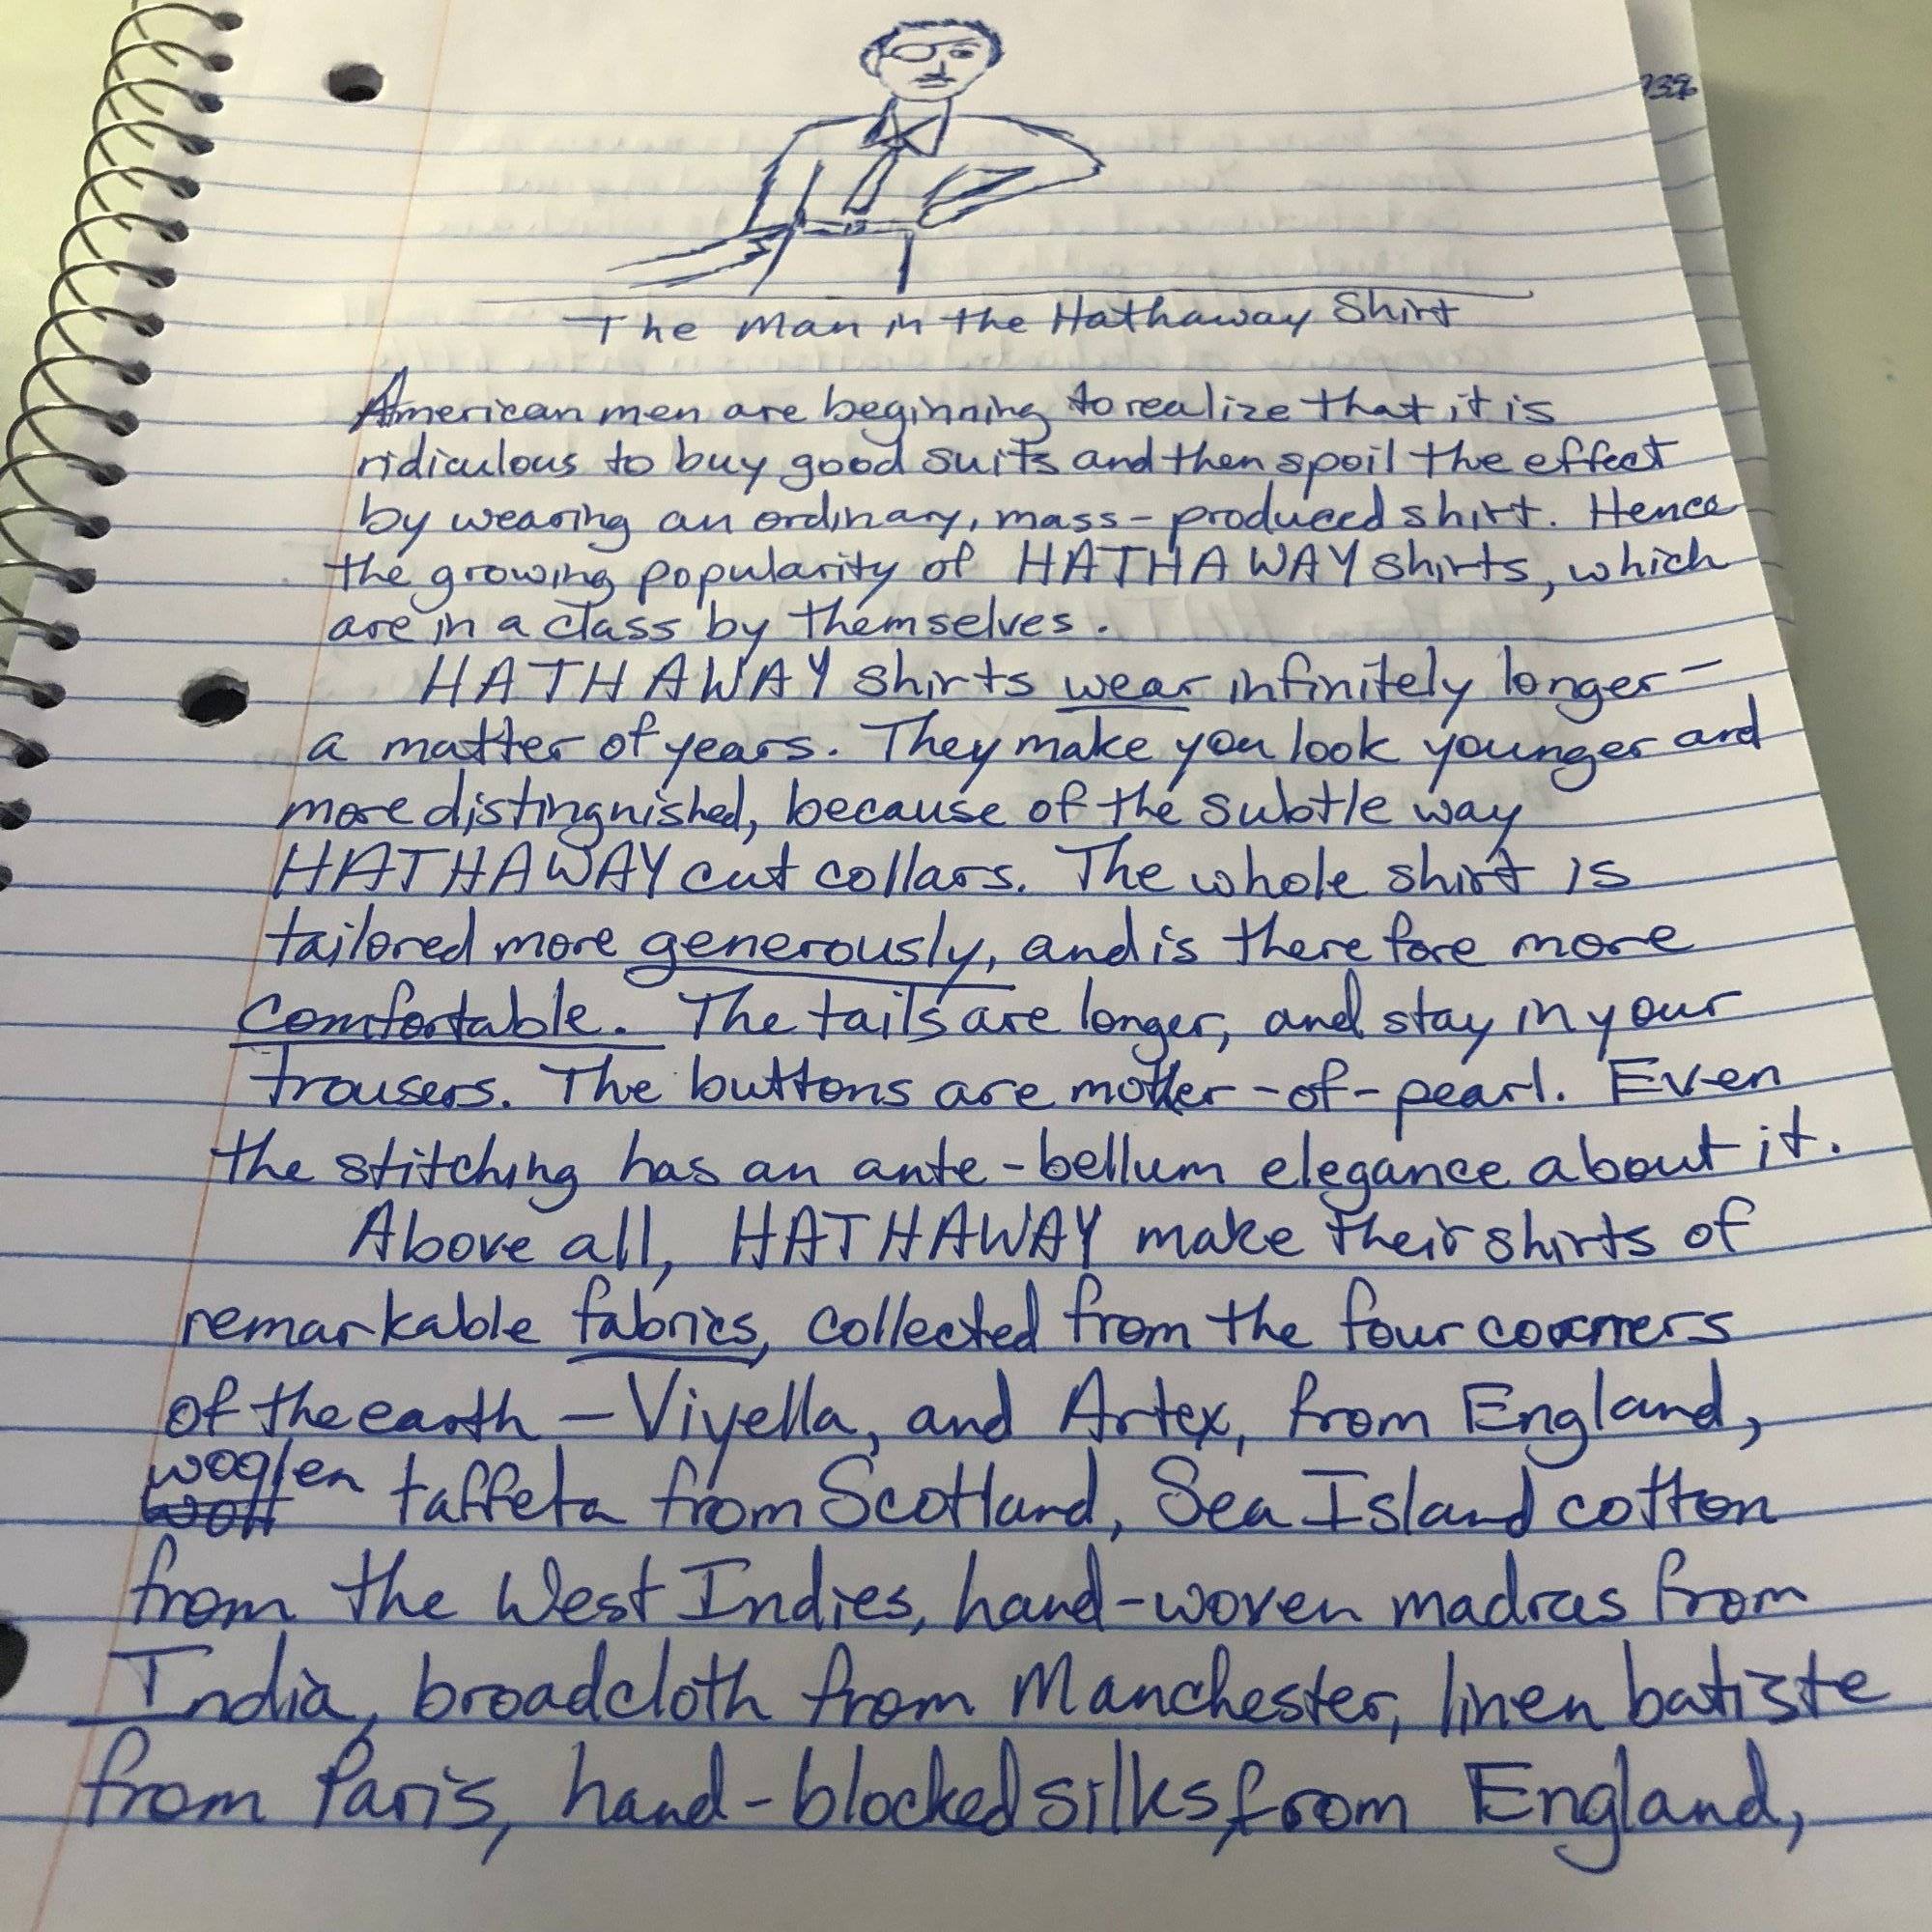 The Man in the Hathaway Shirt
American men are beginning to realize that it is
ridiculous to buy good suits and then spoil the effect
by wearing an ordinary, mass-produced shirt. Hence
the growing popularity of HATHAWAY shirts, which
are in a class by themselves.
HATHAWAY shirts wear infinitely longer –
a matter of years. They make you look younger and
more distinguished, because of the subtle way
HATHAWAY cut collars. The whole shirt is
tailored more generously, and is therefore more
comfortable. The tails are longer, and stay in your
trousers. The buttons are mother-of-pearl. Even
the stitching has an ante-bellum elegance about it.
Above all, HATHAWAY make their shirts of
remarkable fabrics, collected from the four corners
of the earth – Viyella, and Artex, from England,
woolen taffeta from Scotland, Sea Island cotton
from the West Indies, hand-woven madras from
India, broadcloth from Manchester, linen batiste
from Paris, hand-blocked silks, from England,